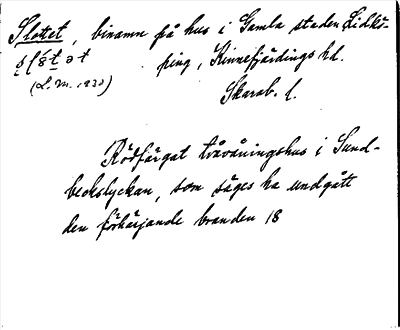 Slottet, binamn på hus i Gamla staden Lidkö-
ping, Kinnefjärdings hd.
(L. M. 1930)
Skarab. l.
Rödfärgat tvåvåningshus i Sund-
beckslyckan, som säges ha undgått
den förhärjande branden 18